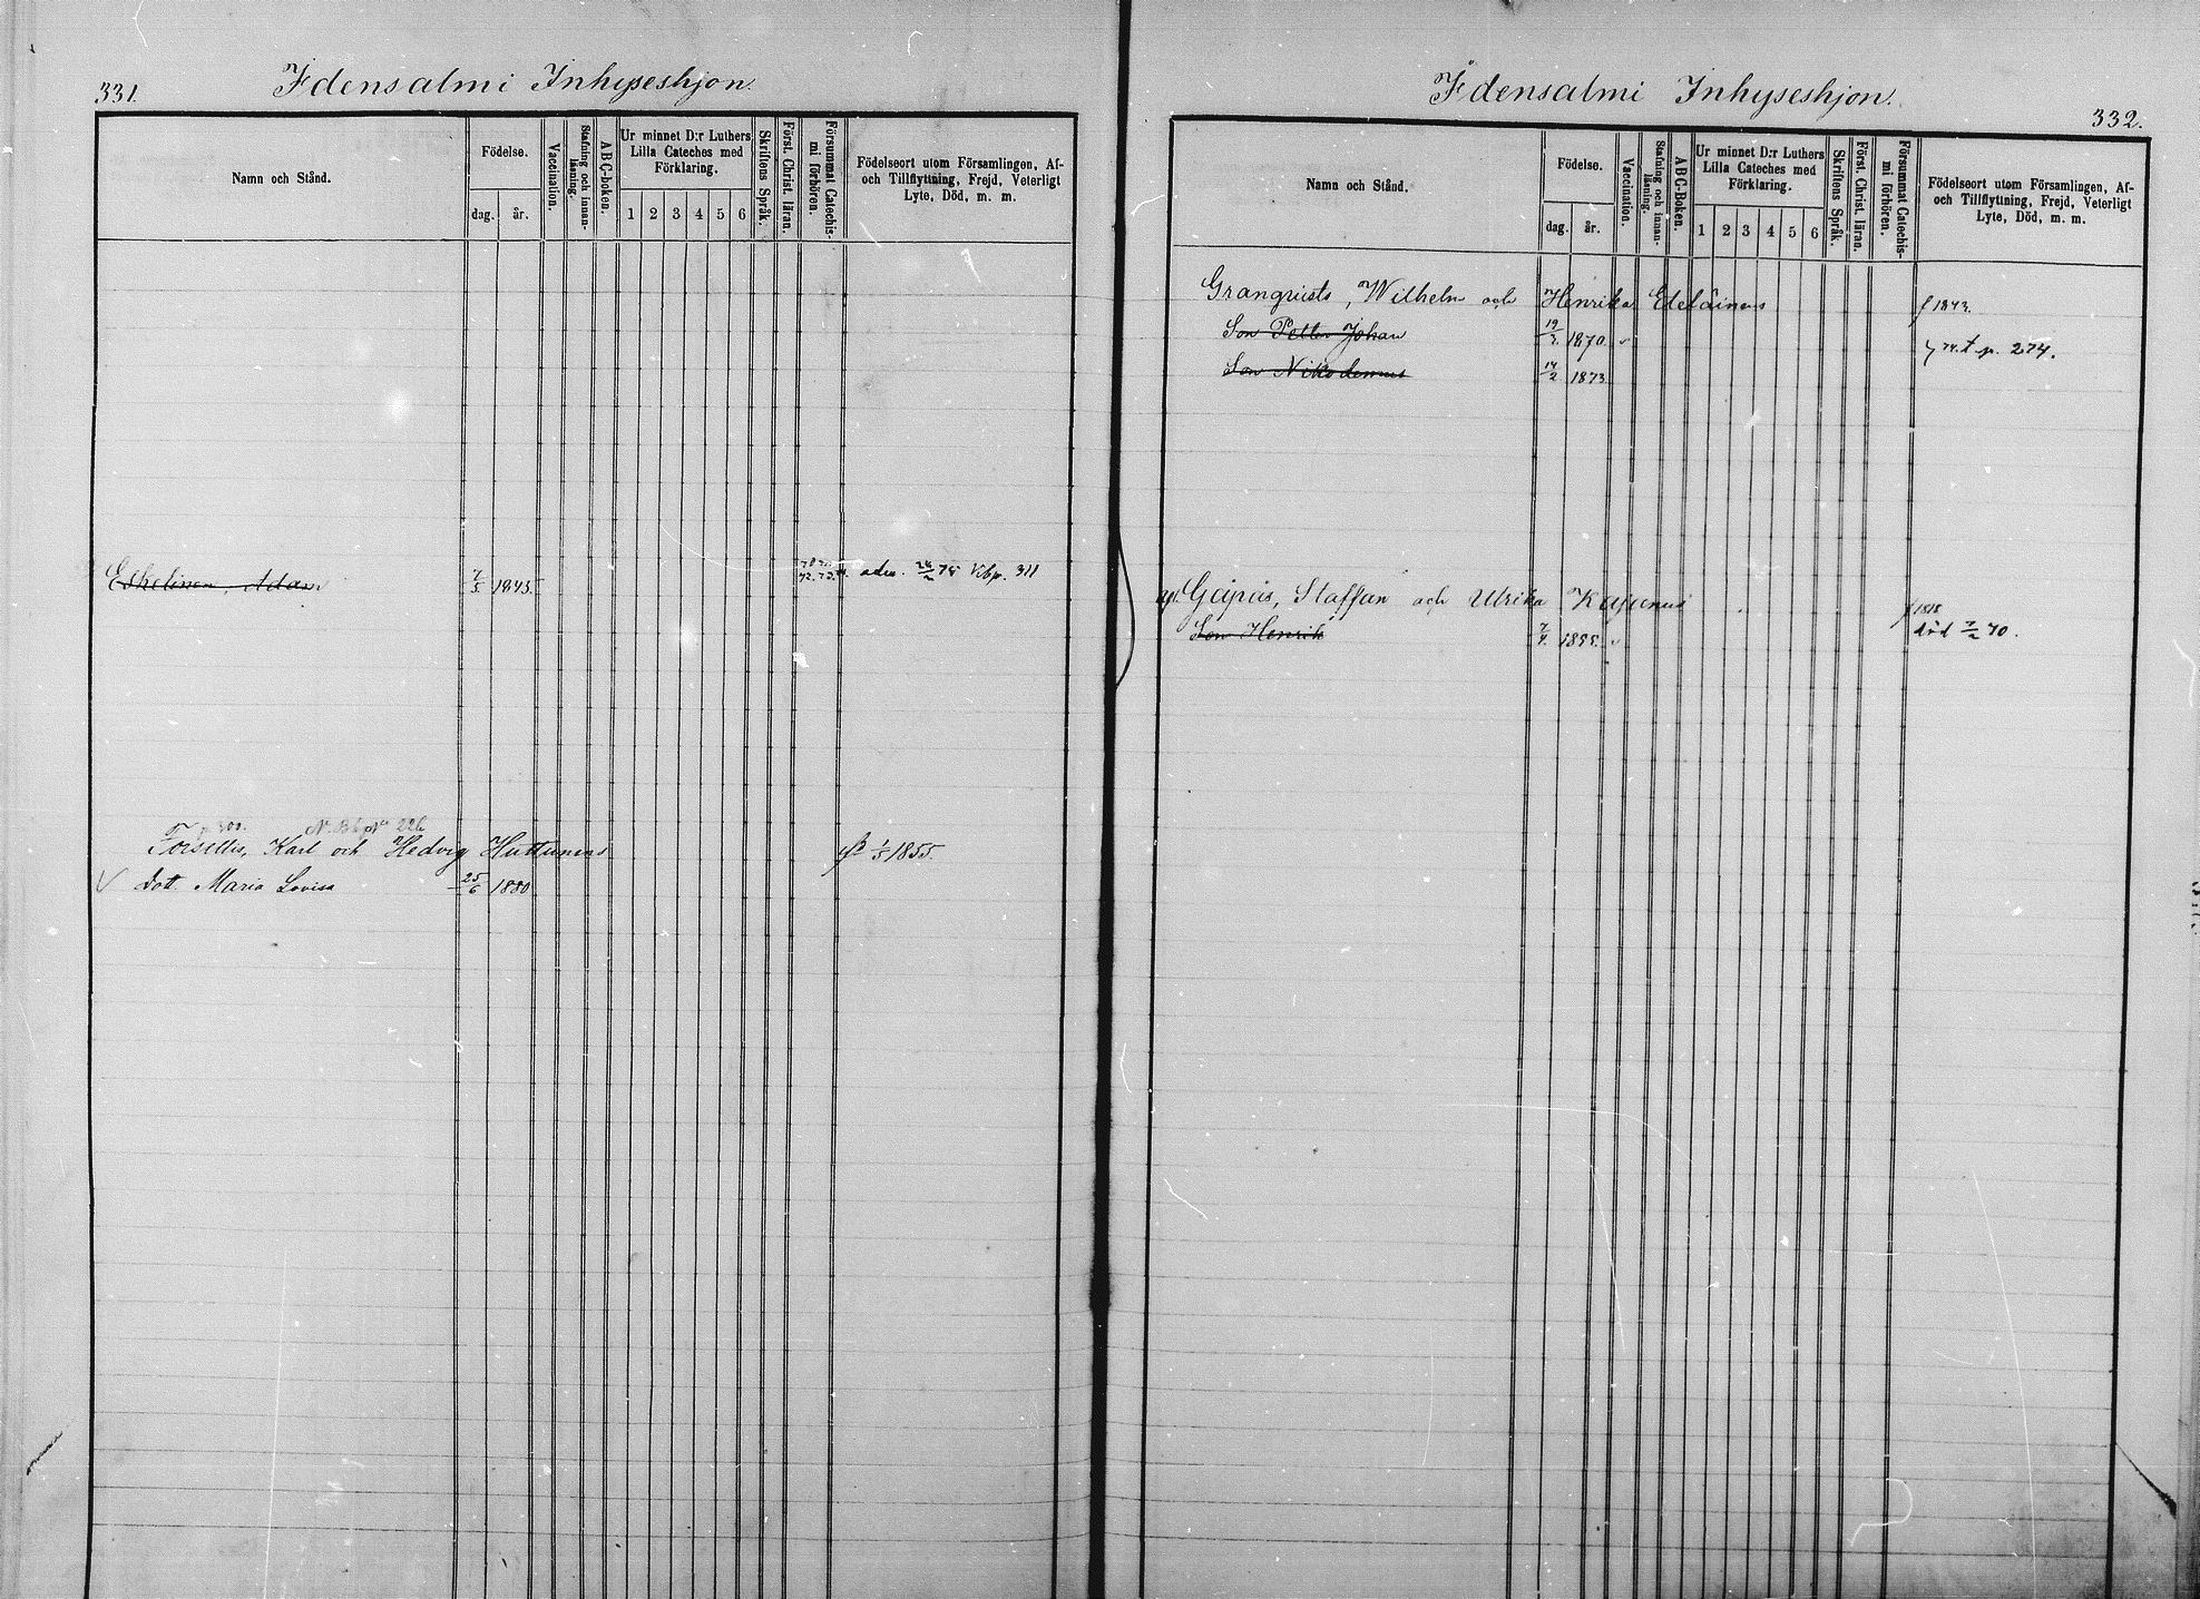 331.
Idensalmi Inhyseshjon.
Namn och Stånd.
Födelse.
dag. år.
Vaccination.
Stafning och innan-
läsning.
ABC-boken.
Ur minnet D:r Luthers
Lilla Cateches med
Förklaring.
1 2 3 4 5 6
Skriftens Språk.
Först. Christ. läran.
Försummat Catechis-
mi förhören.
Födelseort utom Församlingen, Af-
och Tillflyttning, Frejd, Veterligt
Lyte, Död, m. m.
Eskelinen, Adam 7/5 1843.
26/2 75 Vibp. 311
p. 300. N. Bb p No 226
Forsellis, Karl och Hedvig Huttunens 1/5 1855.
Dott. Maria Lovisa 25/6 1880
Idensalmi Inhyseshjon.
332.
Namn och Stånd.
Födelse.
dag. år.
Vaccination.
Stafning och innan-
läsning.
ABC-Boken.
Ur minnet D:r Luthers
Lilla Cateches med
Förklaring.
1 2 3 4 5 6
Skriftens Språk.
Först. Christ. läran.
Försummat Catechis-
mi förhören.
Födelseort utom Församlingen, Af-
och Tillflyttning, Frejd, Veterligt
Lyte, Död, m. m.
Granqvists, Wilhelm och Henrika Eteläinens f 1843.
Son Petter Johan 19/3. 1870. 74. t p. 274.
Son Nikodemus 14/2 1873
Staffan och Ulrika Kajanus f 1818
Son Henrik 7/4. 1855. död 7/2 70.